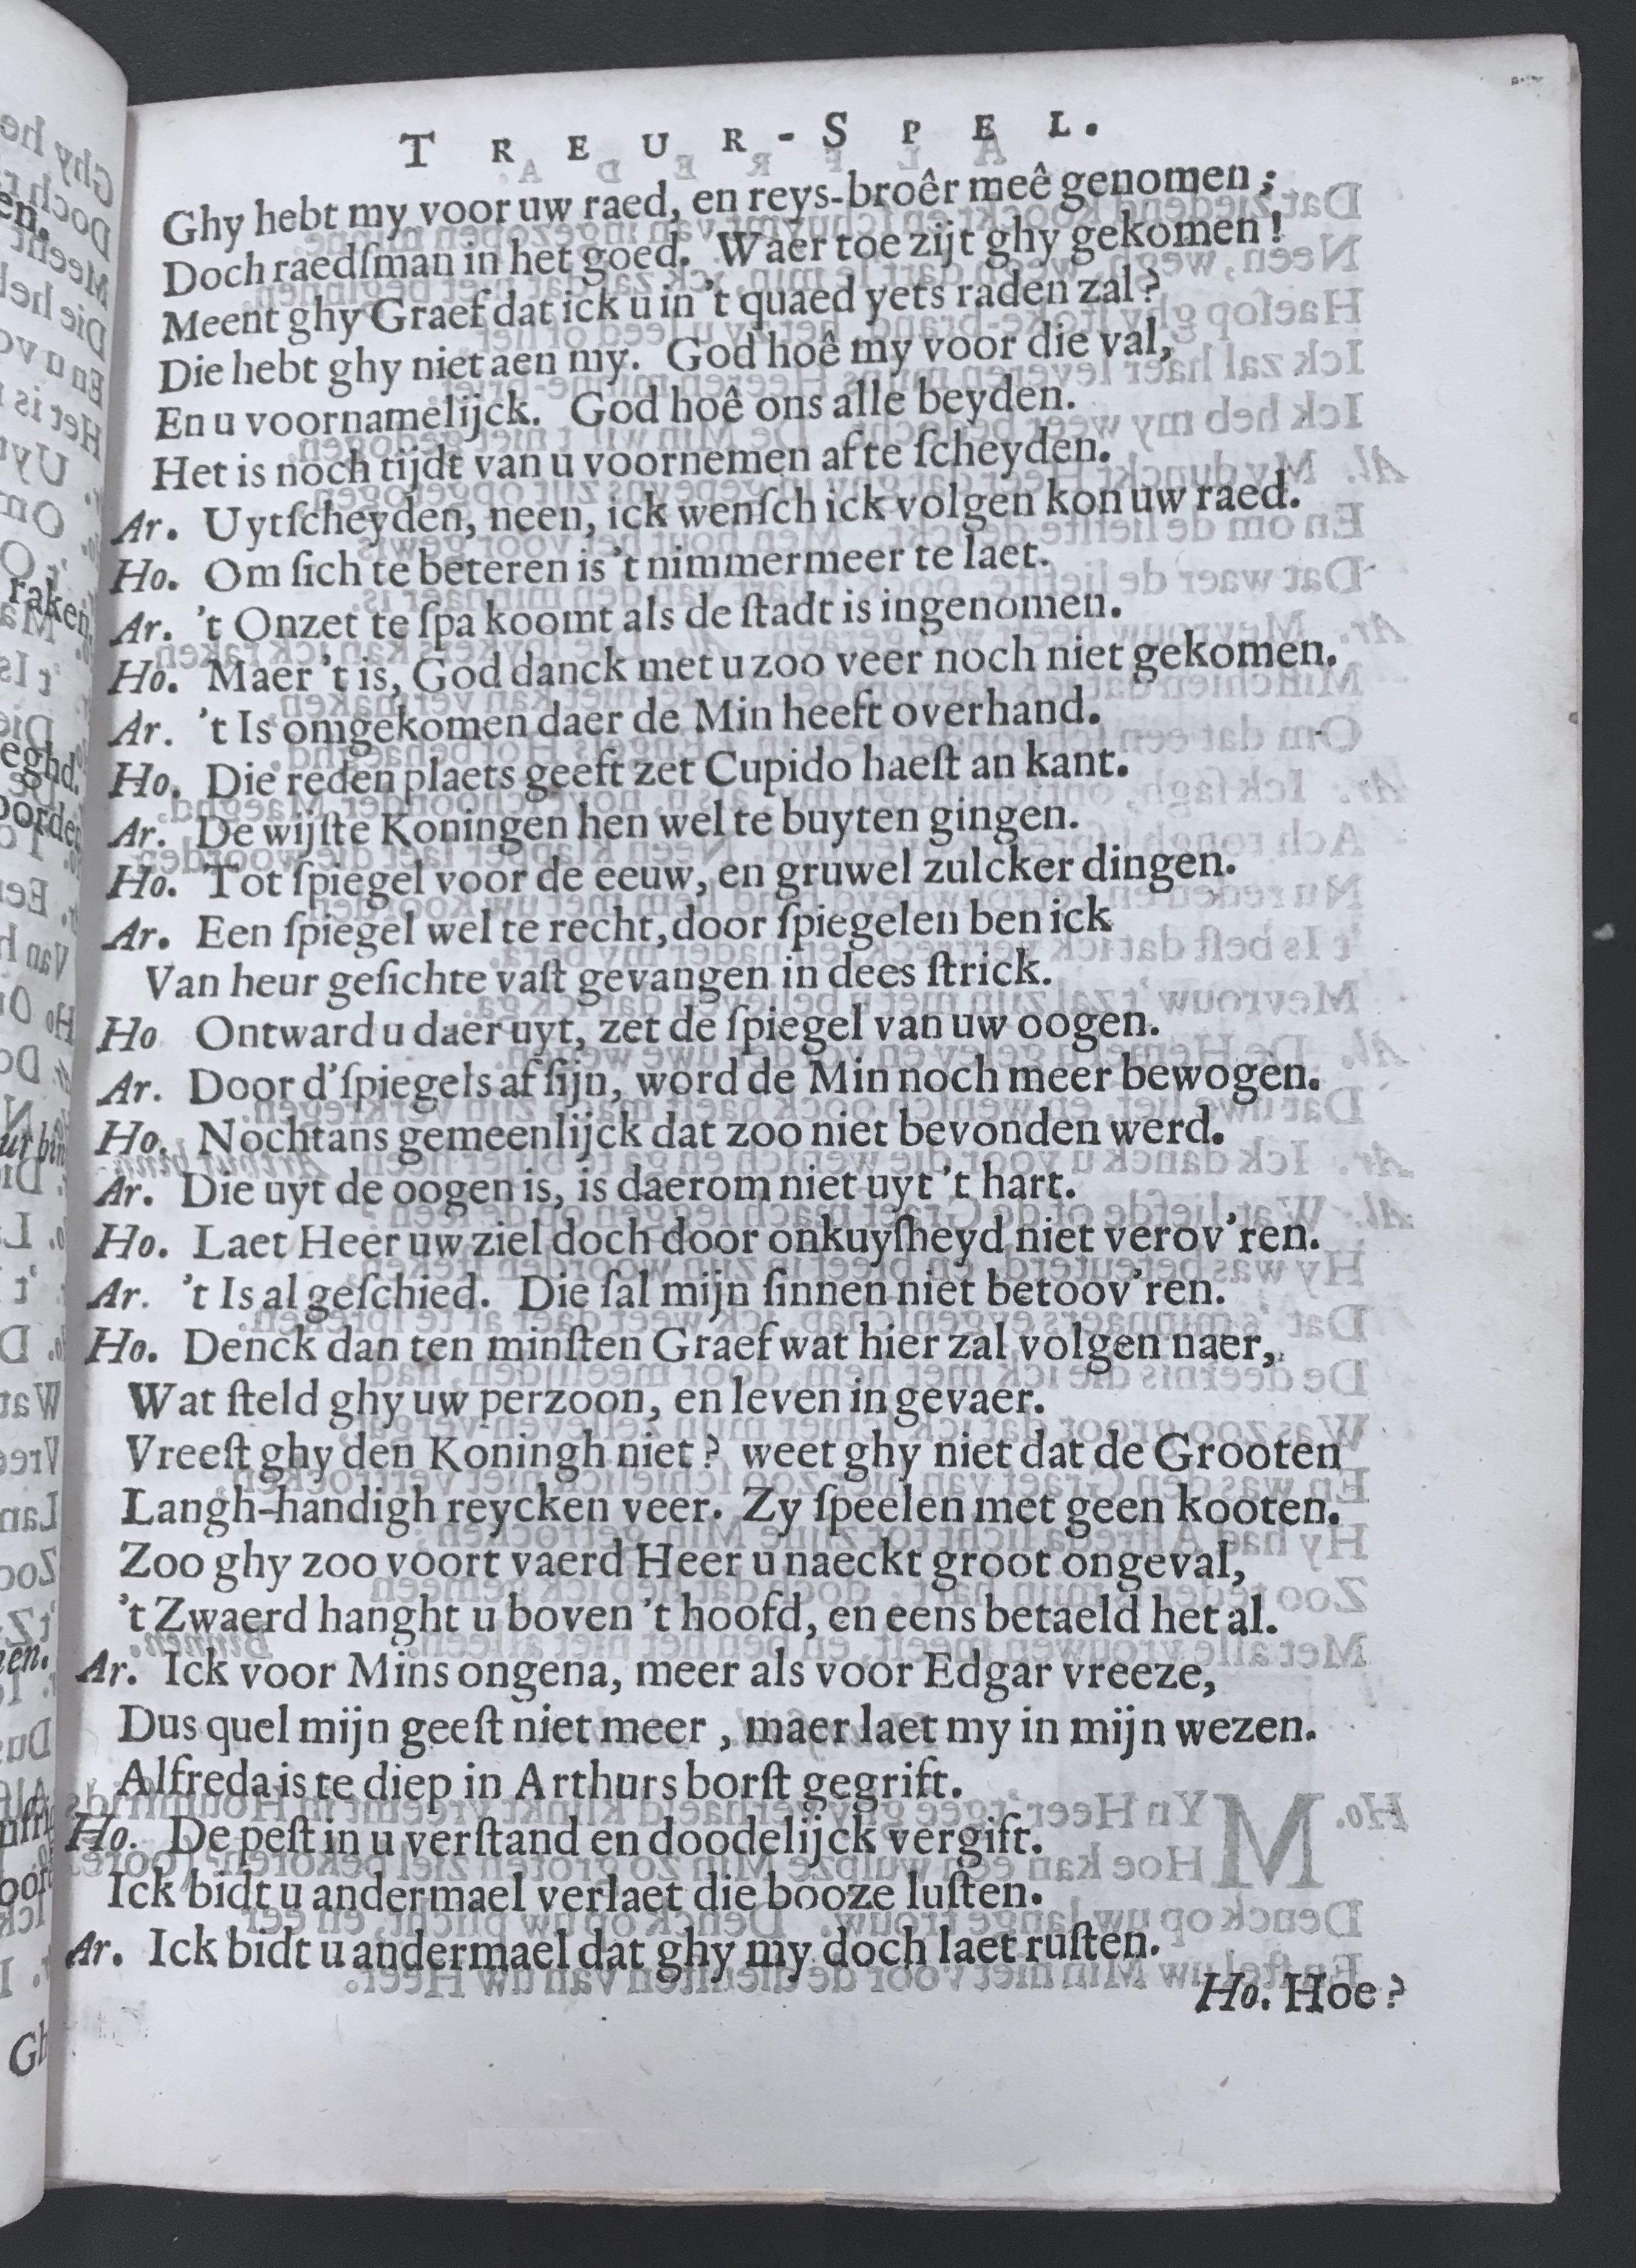 TREUR-SPEL.
Ghy hebt my voor uw raed, en reys-broêr meê genomen;
Doch raedſman in het goed. Waer toe zijt ghy gekomen!
Meent ghy Graef dat ick u in 't quaed yets raden zal?
Die hebt ghy niet aen my. God hoê my voor die val,
En u voornamelijck. God hoê ons alle beyden.
Het is noch tijdt van u voornemen af te ſcheyden.
Ar. Uytſcheyden, neen, ick wenſch ick volgen kon uw raed.
Ho. Om ſich te beteren is 't nimmermeer te laet.
Ar. 't Onzet te ſpa koomt als de ſtadt is ingenomen.
Ho. Maer 't is, God danck met u zoo veer noch niet gekomen.
Ar. 't Is omgekomen daer de Min heeft overhand.
Ho. Die reden plaets geeft zet Cupido haeſt an kant.
Ar. De wijſte Koningen hen wel te buyten gingen.
Ho. Tot ſpiegel voor de eeuw, en gruwel zulcker dingen.
Ar. Een ſpiegel wel te recht, door ſpiegelen ben ick
Van heur geſichte vaſt gevangen in dees ſtrick.
Ho Ontward u daer uyt, zet de ſpiegel van uw oogen.
Ar. Door d'ſpiegels af ſijn, word de Min noch meer bewogen.
Ho. Nochtans gemeenlijck dat zoo niet bevonden werd.
Ar. Die uyt de oogen is, is daerom niet uyt 't hart.
Ho. Laet Heer uw ziel doch door onkuyſheyd niet verov'ren.
Ar. 't Is al geſchied. Die ſal mijn ſinnen niet betoov'ren.
Ho. Denck dan ten minſten Graef wat hier zal volgen naer,
Wat ſteld ghy uw perzoon, en leven in gevaer.
Vreeſt ghy den Koningh niet? weet ghy niet dat de Grooten
Langh-handigh reycken veer. Zy ſpeelen met geen kooten.
Zoo ghy zoo voort vaerd Heer u naeckt groot ongeval,
't Zwaerd hanght u boven 't hoofd, en eens betaeld het al.
Ar. Ick voor Mins ongena, meer als voor Edgar vreeze,
Dus quel mijn geeſt niet meer, maer laet my in mijn wezen.
Alfreda is te diep in Arthurs borſt gegrift.
Ho. De peſt in u verſtand en doodelijck vergift.
Ick bidt u andermael verlaet die booze luſten.
Ar. Ick bidt u andermael dat ghy my doch laet ruſten.
Ho. Hoe?